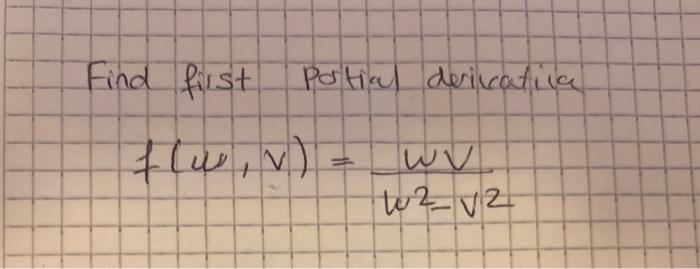 Find first Partial derivative
f(w, v) = wv
w2-v2